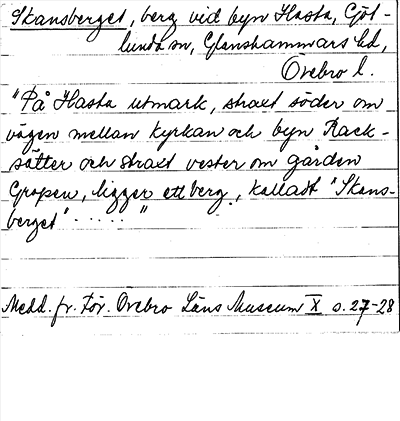 Skansberget, berg vid byn Hasta, Göt-
lunda sn, Glanshammars hd,
Örebro l.
"På Hasta utmark, straxt söder om
vägen mellan kyrkan och byn Rack-
sätter och straxt vester om gården
Gropen, ligger ett berg, kalladt "Skans-
berget" ....."
Medd. fr. För. Örebro Läns Museum X s. 27-28